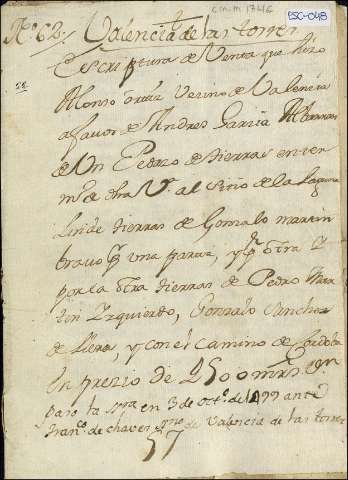 C.M.M 1746
ESC-048
Nº. 62. Valencia de las torres
Escriptura de Venta que hizo
Alonso ortiz Vezino de Valencia
a favor de Andres Garcia
de Un Pedazo de tierras en ter
mº de dha Vª. al sitio de la Laguna
Linde tierras de Gonzalo martin
bravo por una parte, y por otra
por la otra tierras de Pedro Mar
tin Yzquierdo, Gonzalo Sanchez
de llera, y con el Camino de Cordoba
En prezio de 2500 mrs
paso la en 3 de de 1 ante
Franco. de chaves de Valencia de las torres
57